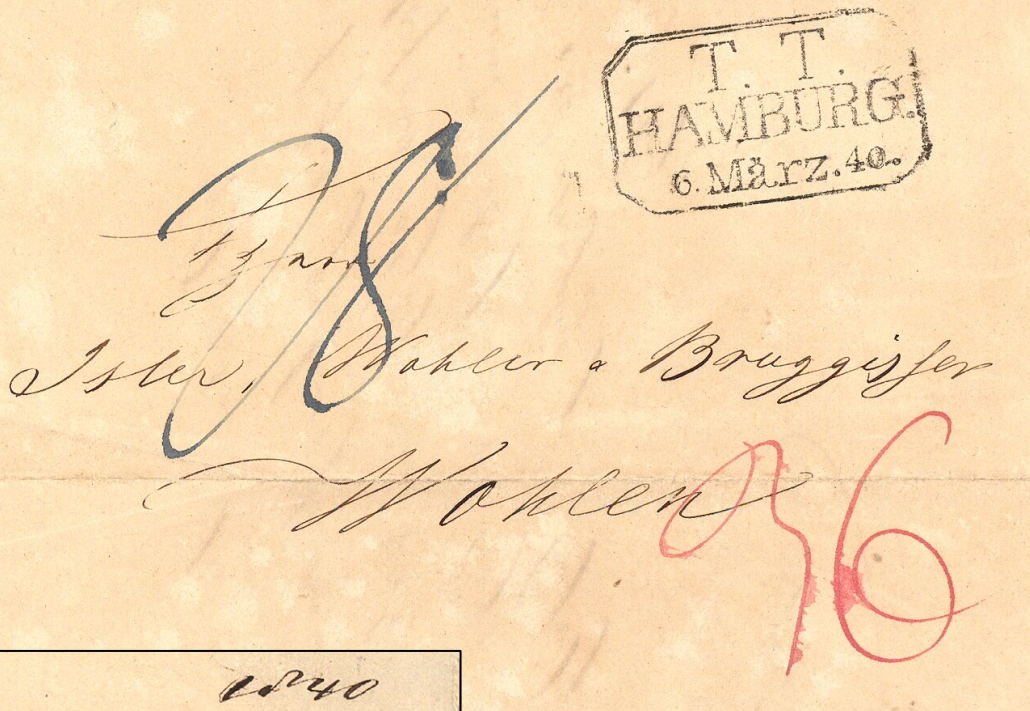 T. T.
HAMBURG.
6. März. 40.
Isler, Wohler & Bruggisser
Wohlen
36
1840